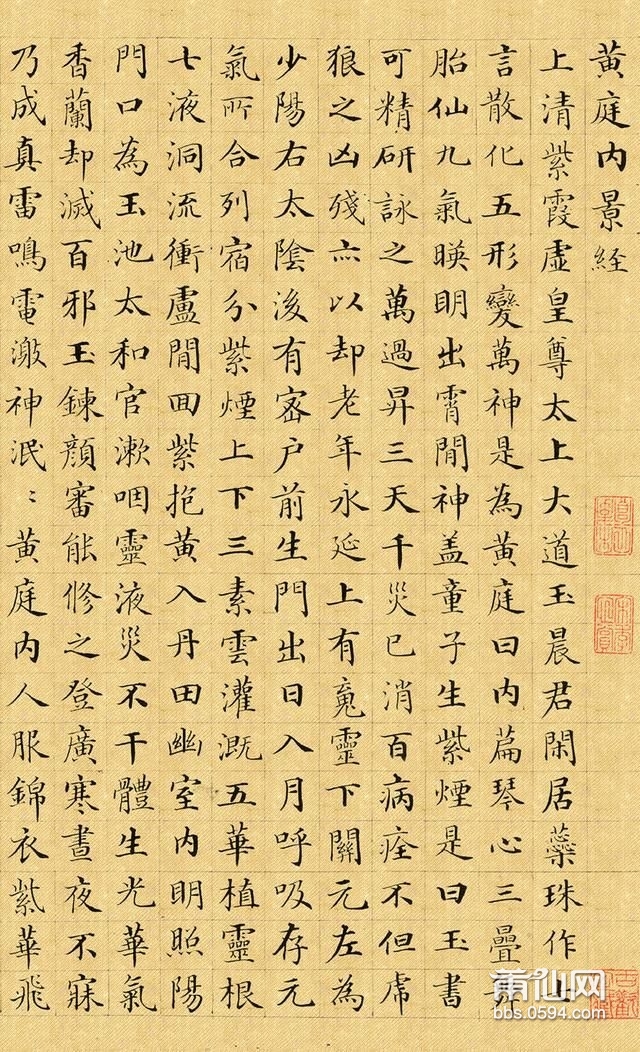 黃庭內景経
上清紫霞虛皇尊太上大道玉晨君閑居蘂珠作七
言散化五形變萬神是為黃庭曰內篇琴心三疊
胎仙九氣暎明出霄閒神盖童子生紫煙是曰玉書
可精研詠之萬過昇三天千災已消百病痊不但虎
狼之凶殘亦以却老年永延上有魂靈下關元左為
少陽右太陰後有密户前生門出日入月呼吸存元
氣所合列宿分紫煙上下三素雲灌溉五華植靈根
七液洞流衝盧閒回紫抱黃入丹田幽室內明照陽
門口為玉池太和官漱咽靈液災不干體生光華氣
香蘭却滅百邪玉鍊顏審能修之登廣寒晝夜不寐
乃成真雷鳴電激神泯:黃庭內人服錦衣紫華飛
莆仙网
bbs.0594.com